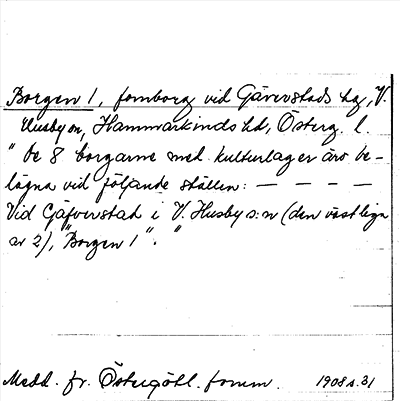 Borgen 1, fornborg vid Gäverstads hg, V.
Husby sn, Hammarkinds hd, Österg. l.
"De 8 borgarne med kulturlager äro be-
lägna vid följande ställen: — — — —
Vid Gäfverstad i V. Husby s:n (den västliga
av 2), "Borgen 1". "
Medd. fr. Östergötl. fornm. 1908 s. 31